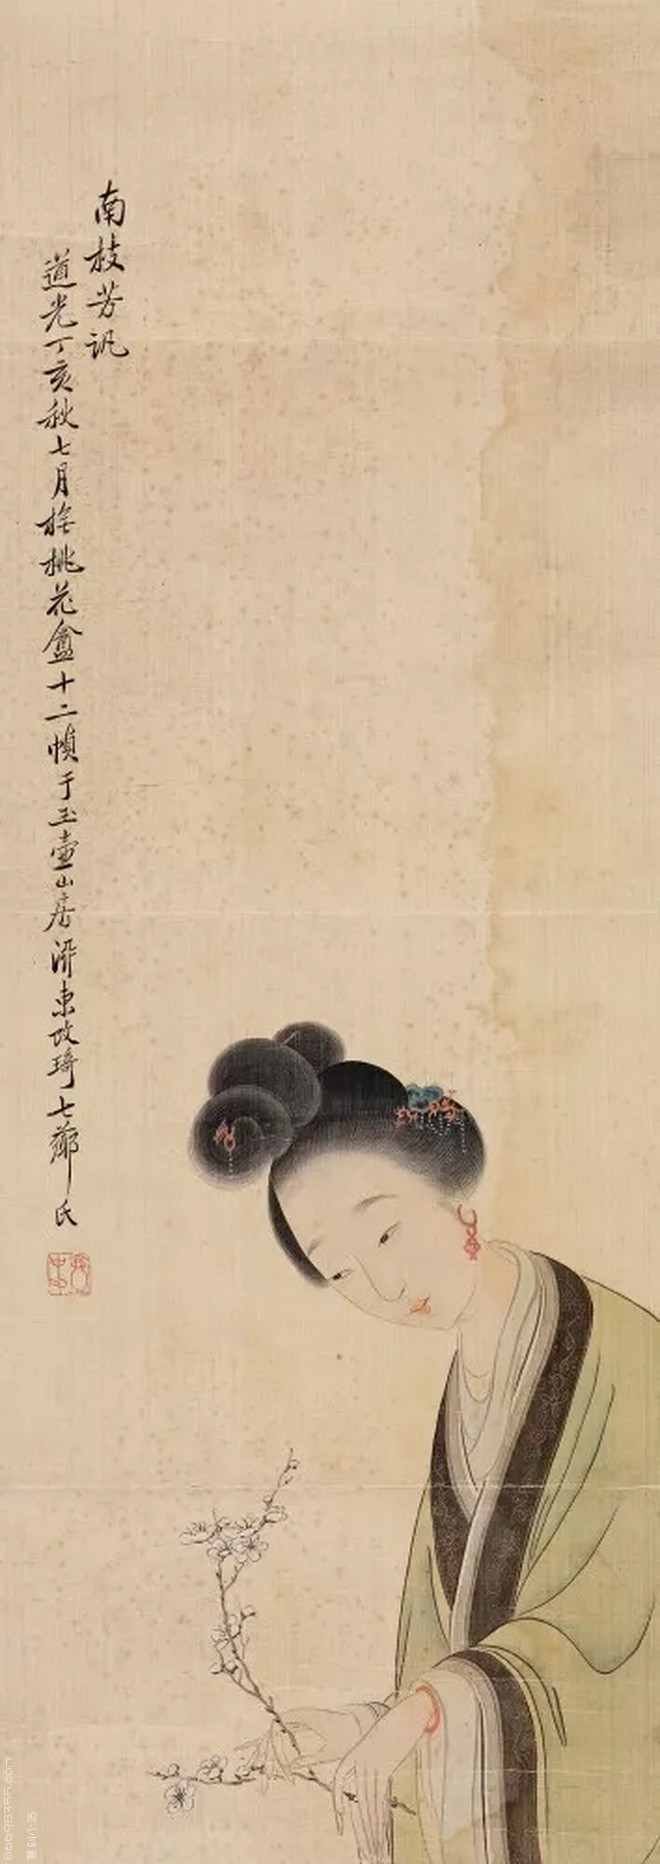 南枝芳訊
道光丁亥秋七月橅桃花盦十二幀于玉壺山房泲東改琦七薌氏